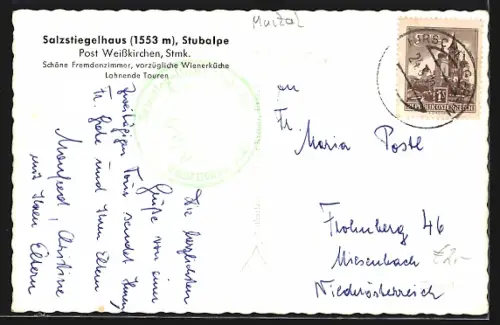 Salzstiegelhaus (1553 m), Stubalpe
Post Weißkirchen, Stmk.
Schöne Fremdenzimmer, vorzügliche Wienerküche
Lohnende Touren
Die herzlichsten
Grüße von einer
zweitägigen Tour sendet Ihnen
Fr. und Ihren Eltern
Manfred, Christine
und Ihren Eltern
an
Fr.
Maria Postl
Frohnberg 46
Miesenbach
Niederösterreich
1 S